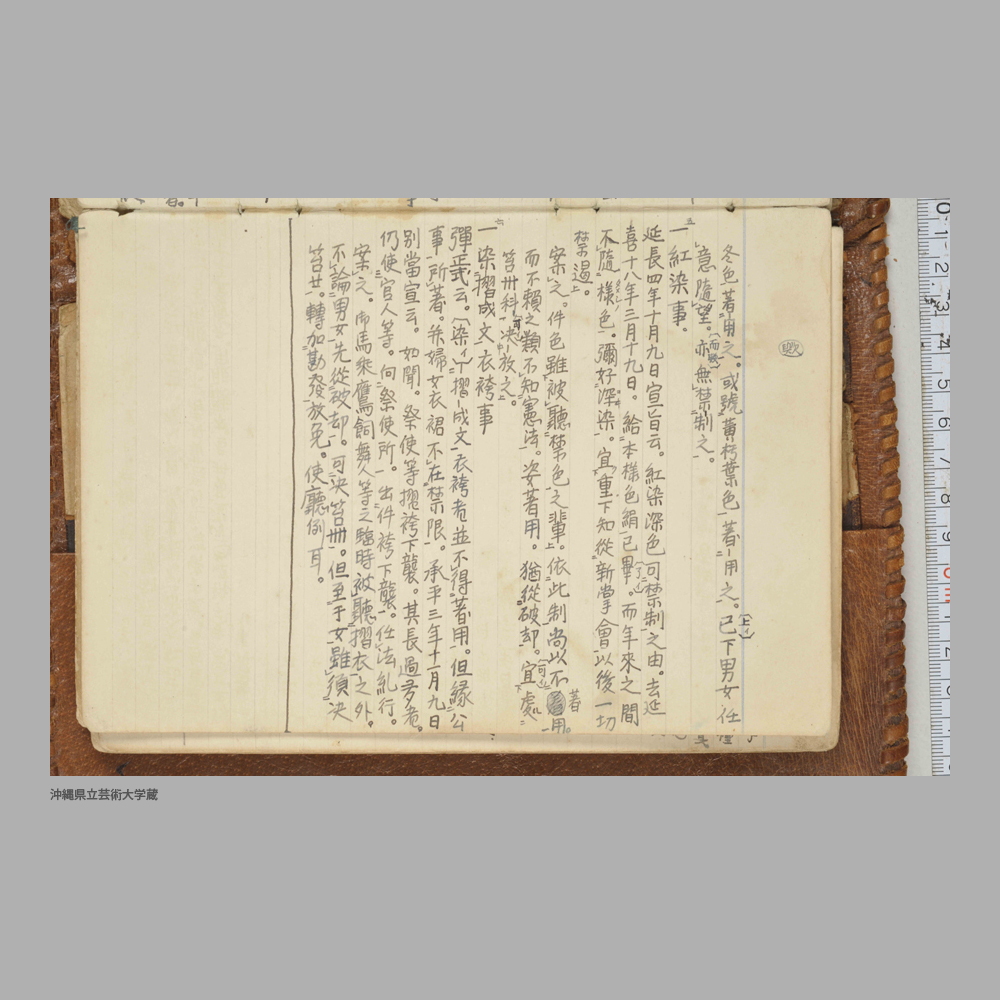 冬色著用之。或號黄朽葉色著用之。已下男女任
意隨望。亦無禁制之。
一紅染事。
延長四年十月九日宣旨云。紅染深色可禁制之由。去延
喜十八年三月十九日。給本様色絹已畢。而年來之間
不隨様色。彌好深染。宜重下知從新嘗會以後一切
禁遏。
案之。件色雖被聽禁色之輩。依此制尚以不著用。
而不頼之類不知憲法。姿著用。猶從破却。宜處
笞卅科決放之。
一染摺成文衣袴事
彈正式云。染摺成文衣袴者並不得著用。但縁公
事所著。并婦女衣裙不在禁限。承平三年十一月九日
別當宣云。如聞。祭使等摺袴下襲。其長過多者。
仍使官人等。向祭使所。出件袴下襲。任法糺行。
案之。馬乘鷹飼舞人等之臨時被聽摺衣之外。
不論男女先從破却。可決笞卅。但至于女雖須決
笞廿。轉加勘發放免。使廳例耳。
沖縄県立芸術大学蔵